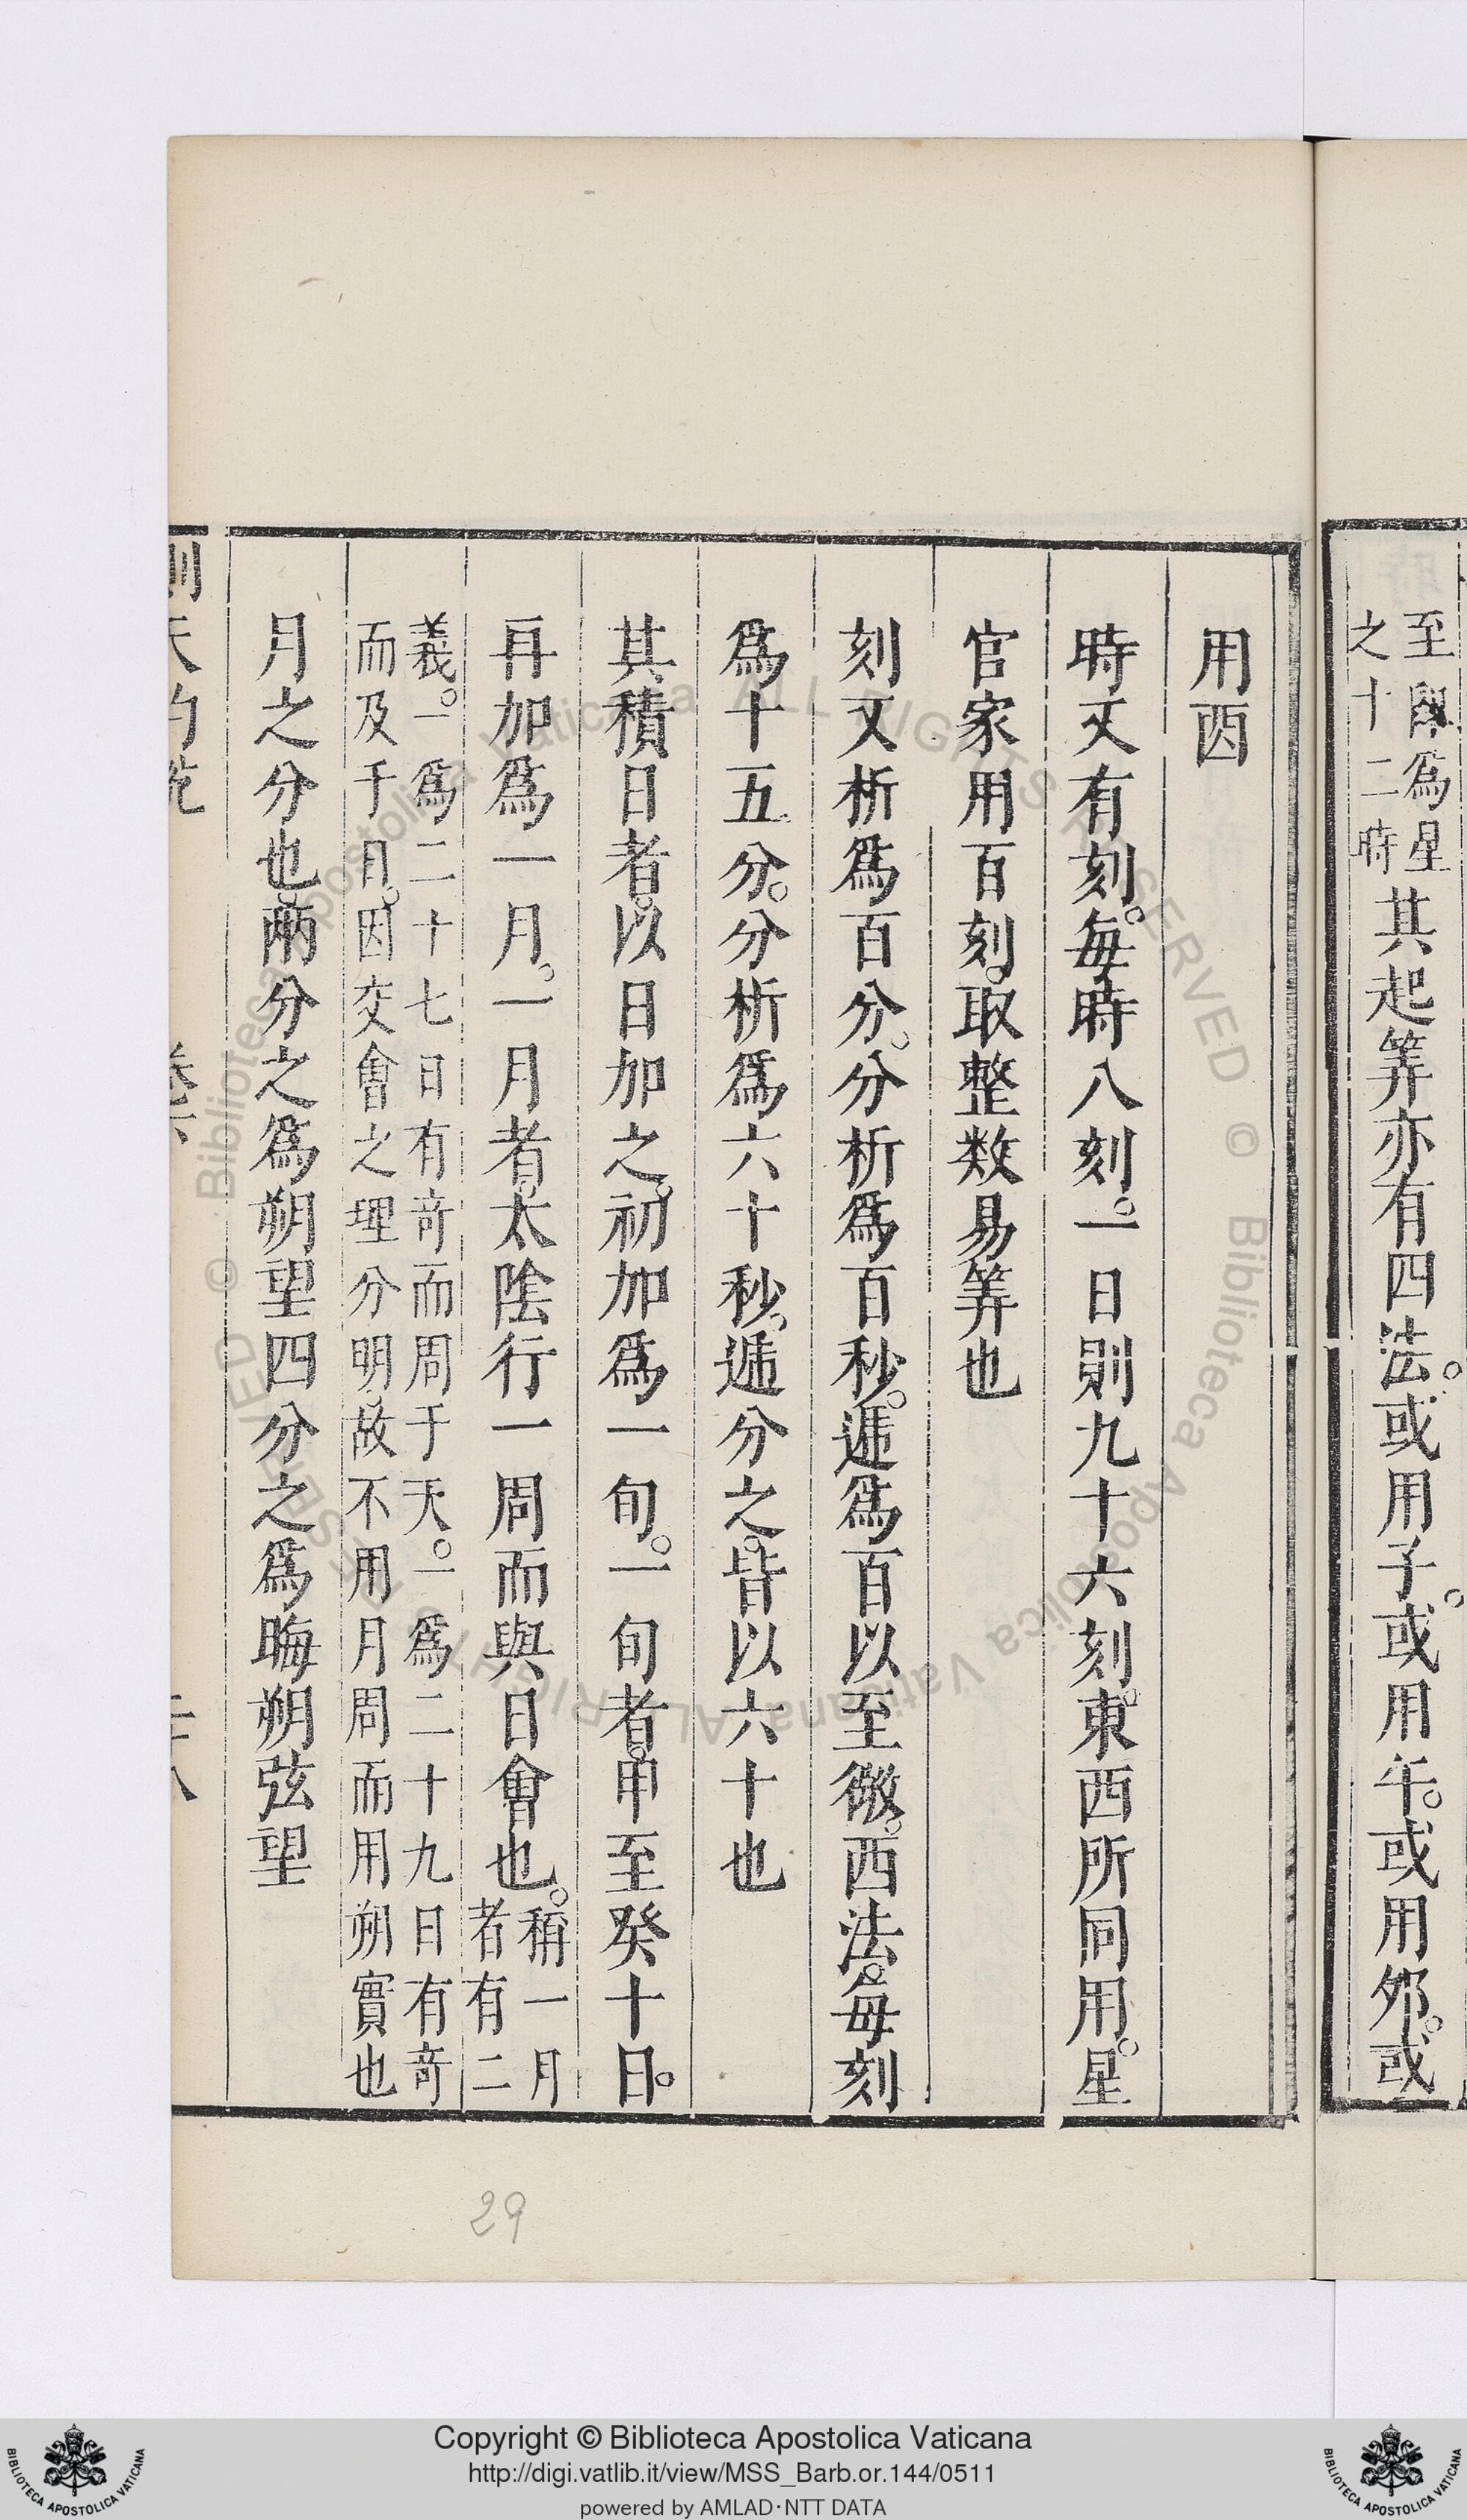 至與爲星
之十二時
其起筭亦有四法。或用子。或用午。或用夘。或
用酉
時又有刻。每時八刻。一日則九十六刻。東西所同用。星
官家用百刻。取整数易筭也
刻又析爲百分。分析爲百秒。遞爲百以至微。西法。每刻
爲十五分。分析爲六十秒。遞分之。皆以六十也
其積日者。以日加之。初加爲一旬。一旬者。甲至癸十日。
再加爲一月。一月者。太陰行一周而與日會也。
稱一月
者有二
義。一爲二十七日有奇而周于天。一爲二十九日有奇
而及于日。因交會之理分明。故不用月周而用朔實也
月之分也。兩分之爲朔望四分之爲晦朔弦望
測天約說
卷
八
29
Copyright © Biblioteca Apostolica Vaticana
http://digi.vatlib.it/view/MSS_Barb.or.144/0511
powered by AMLAD·NTT DATA
BIBLIOTECA APOSTOLICA VATICANA
BIBLIOTECA APOSTOLICA VATICANA